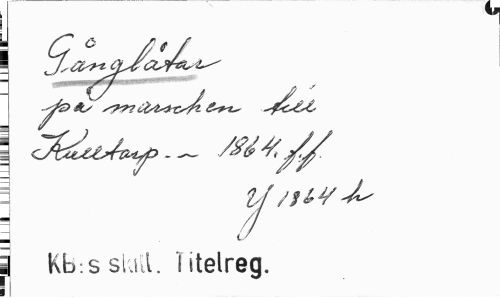 Gånglåtar
på marschen till
Kulltorp. - 1864. f.f.
Y 1864 h
KB:s skill. Titelreg.